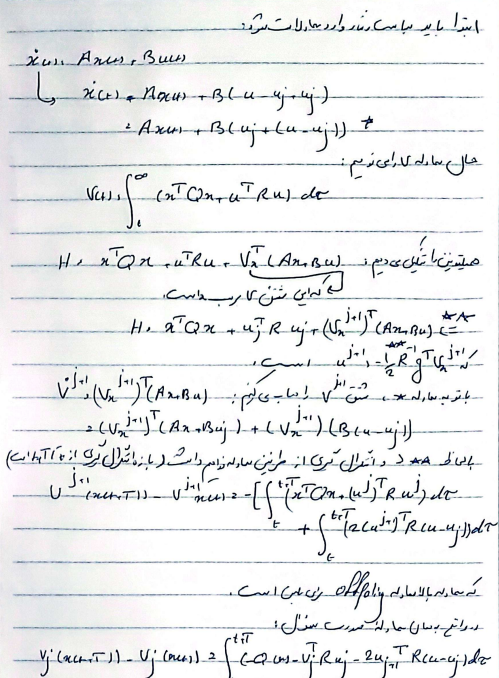 ابتدا باید سیاست رفتار وارد معادلات شود:
ẋ(t) = Ax(t) + Bu(t)
↳ ẋ(t) = Ax(t) + B(u - uj + uj)
= Ax(t) + B(uj + (u - uj)) *
حال معادله V را می نویسیم:
V(t) = ∫_t^∞ (xᵀQx + uᵀRu) dτ
همیلتونین را تشکیل می دهیم: H = xᵀQx + uᵀRu + Vₓᵀ(Ax+Bu)
است.
H = xᵀQx + ujᵀRuj + (Vₓʲ⁺¹)ᵀ(Ax+Bu) **
که uʲ⁺¹ = -½R⁻¹gᵀVₓʲ⁺¹ است.
با توجه به معادله *، مشتق Vʲ⁺¹ را حساب می کنیم: V̇ʲ⁺¹ = (Vₓʲ⁺¹)ᵀ(Ax+Bu)
= (Vₓʲ⁺¹)ᵀ(Ax+Buj) + (Vₓʲ⁺¹)(B(u-uj))
با لحاظ ** و انتگرال گیری از طرفین معادله خواهیم داشت (بازه انتگرال گیری از t تا t+T است)
Vʲ⁺¹(x(t+T)) - Vʲ⁺¹x(t) = -[∫_t^{t+T} (xᵀQx + (uʲ)ᵀRuʲ) dτ
+ ∫_t^{t+T} (2(uʲ⁺¹)ᵀR(u-uj)) dτ
که معادله بالا معادله off policy است.
در واقع معادله بصورت سوال:
Vj(x(t+T)) - Vj(x(t)) = ∫_t^{t+T} (-Q(x) - Ujᵀ Ruj - 2uj+1ᵀ R(u-uj)) dτ